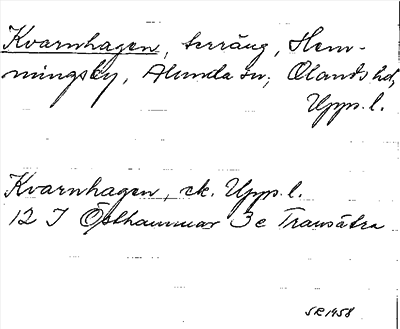 Kvarnhagen, terräng, Hem-
mingsby, Alunda sn; Olands hd,
Upps. l.
Kvarnhagen, ek. Upps. l.
12 I Östhammar 3 c Transätra
SR 1958